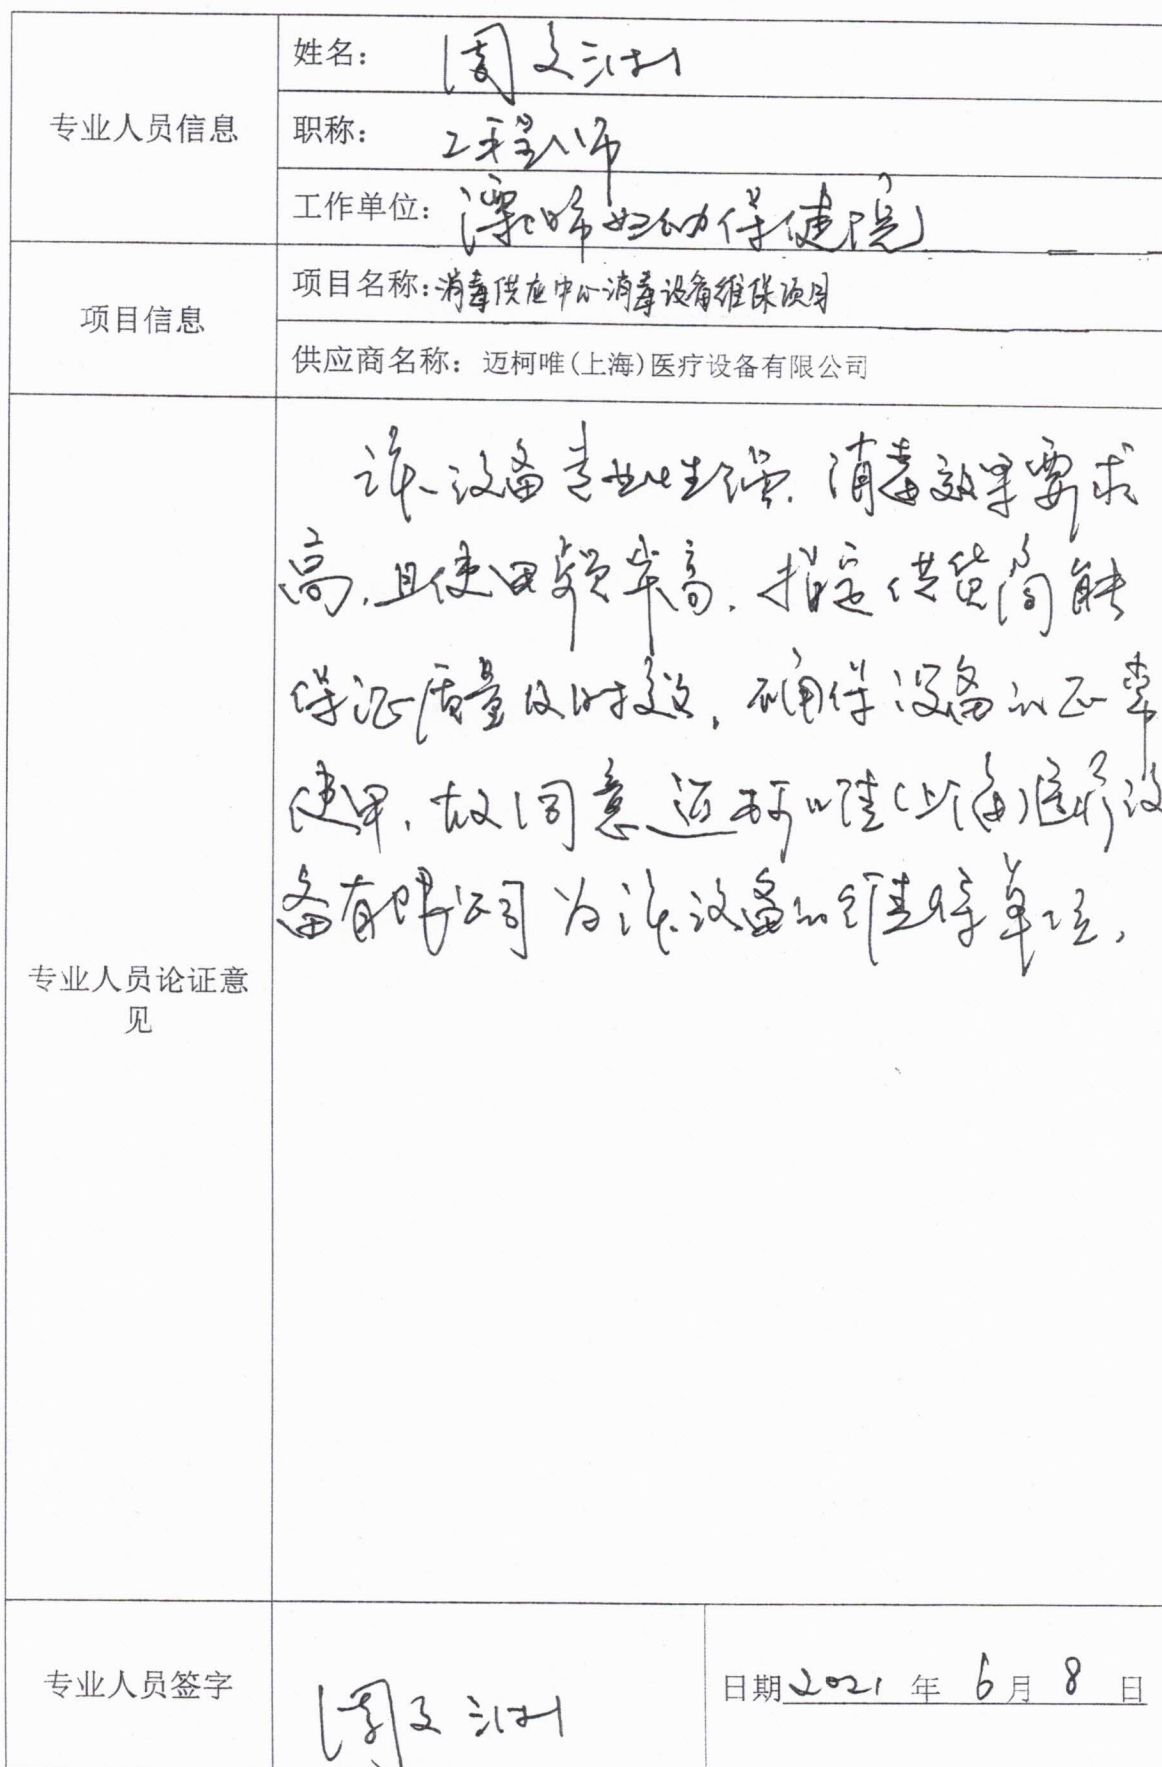 专业人员信息
姓名：周文
职称：工程师
工作单位：妇幼保健院
项目信息
项目名称：消毒供应中心消毒设备维保项目
供应商名称：迈柯唯(上海)医疗设备有限公司
专业人员论证意
见
该设备专业性强，消毒效果要求
高，且使用频率高，指定供货商能
保证质量及时效，确保设备的正常
使用，故同意迈柯唯(上海)医疗设
备有限公司为该设备的维保单位。
专业人员签字
周文
日期2021年6月8日